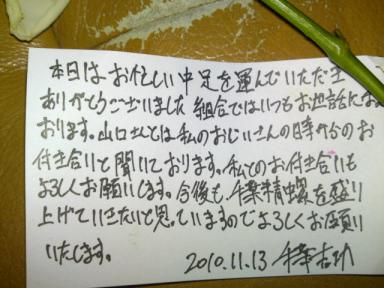 本日はお忙しい中足を運んでいただき
ありがとうございました 組合ではいつもお世話になって
おります。山口さんとは私のおじいさんの時からのお
付き合いと聞いております。私とのお付き合いも
よろしくお願いします。今後も を盛り
上げていきたいと思っていますのでよろしくお願い
いたします。
2010.11.13